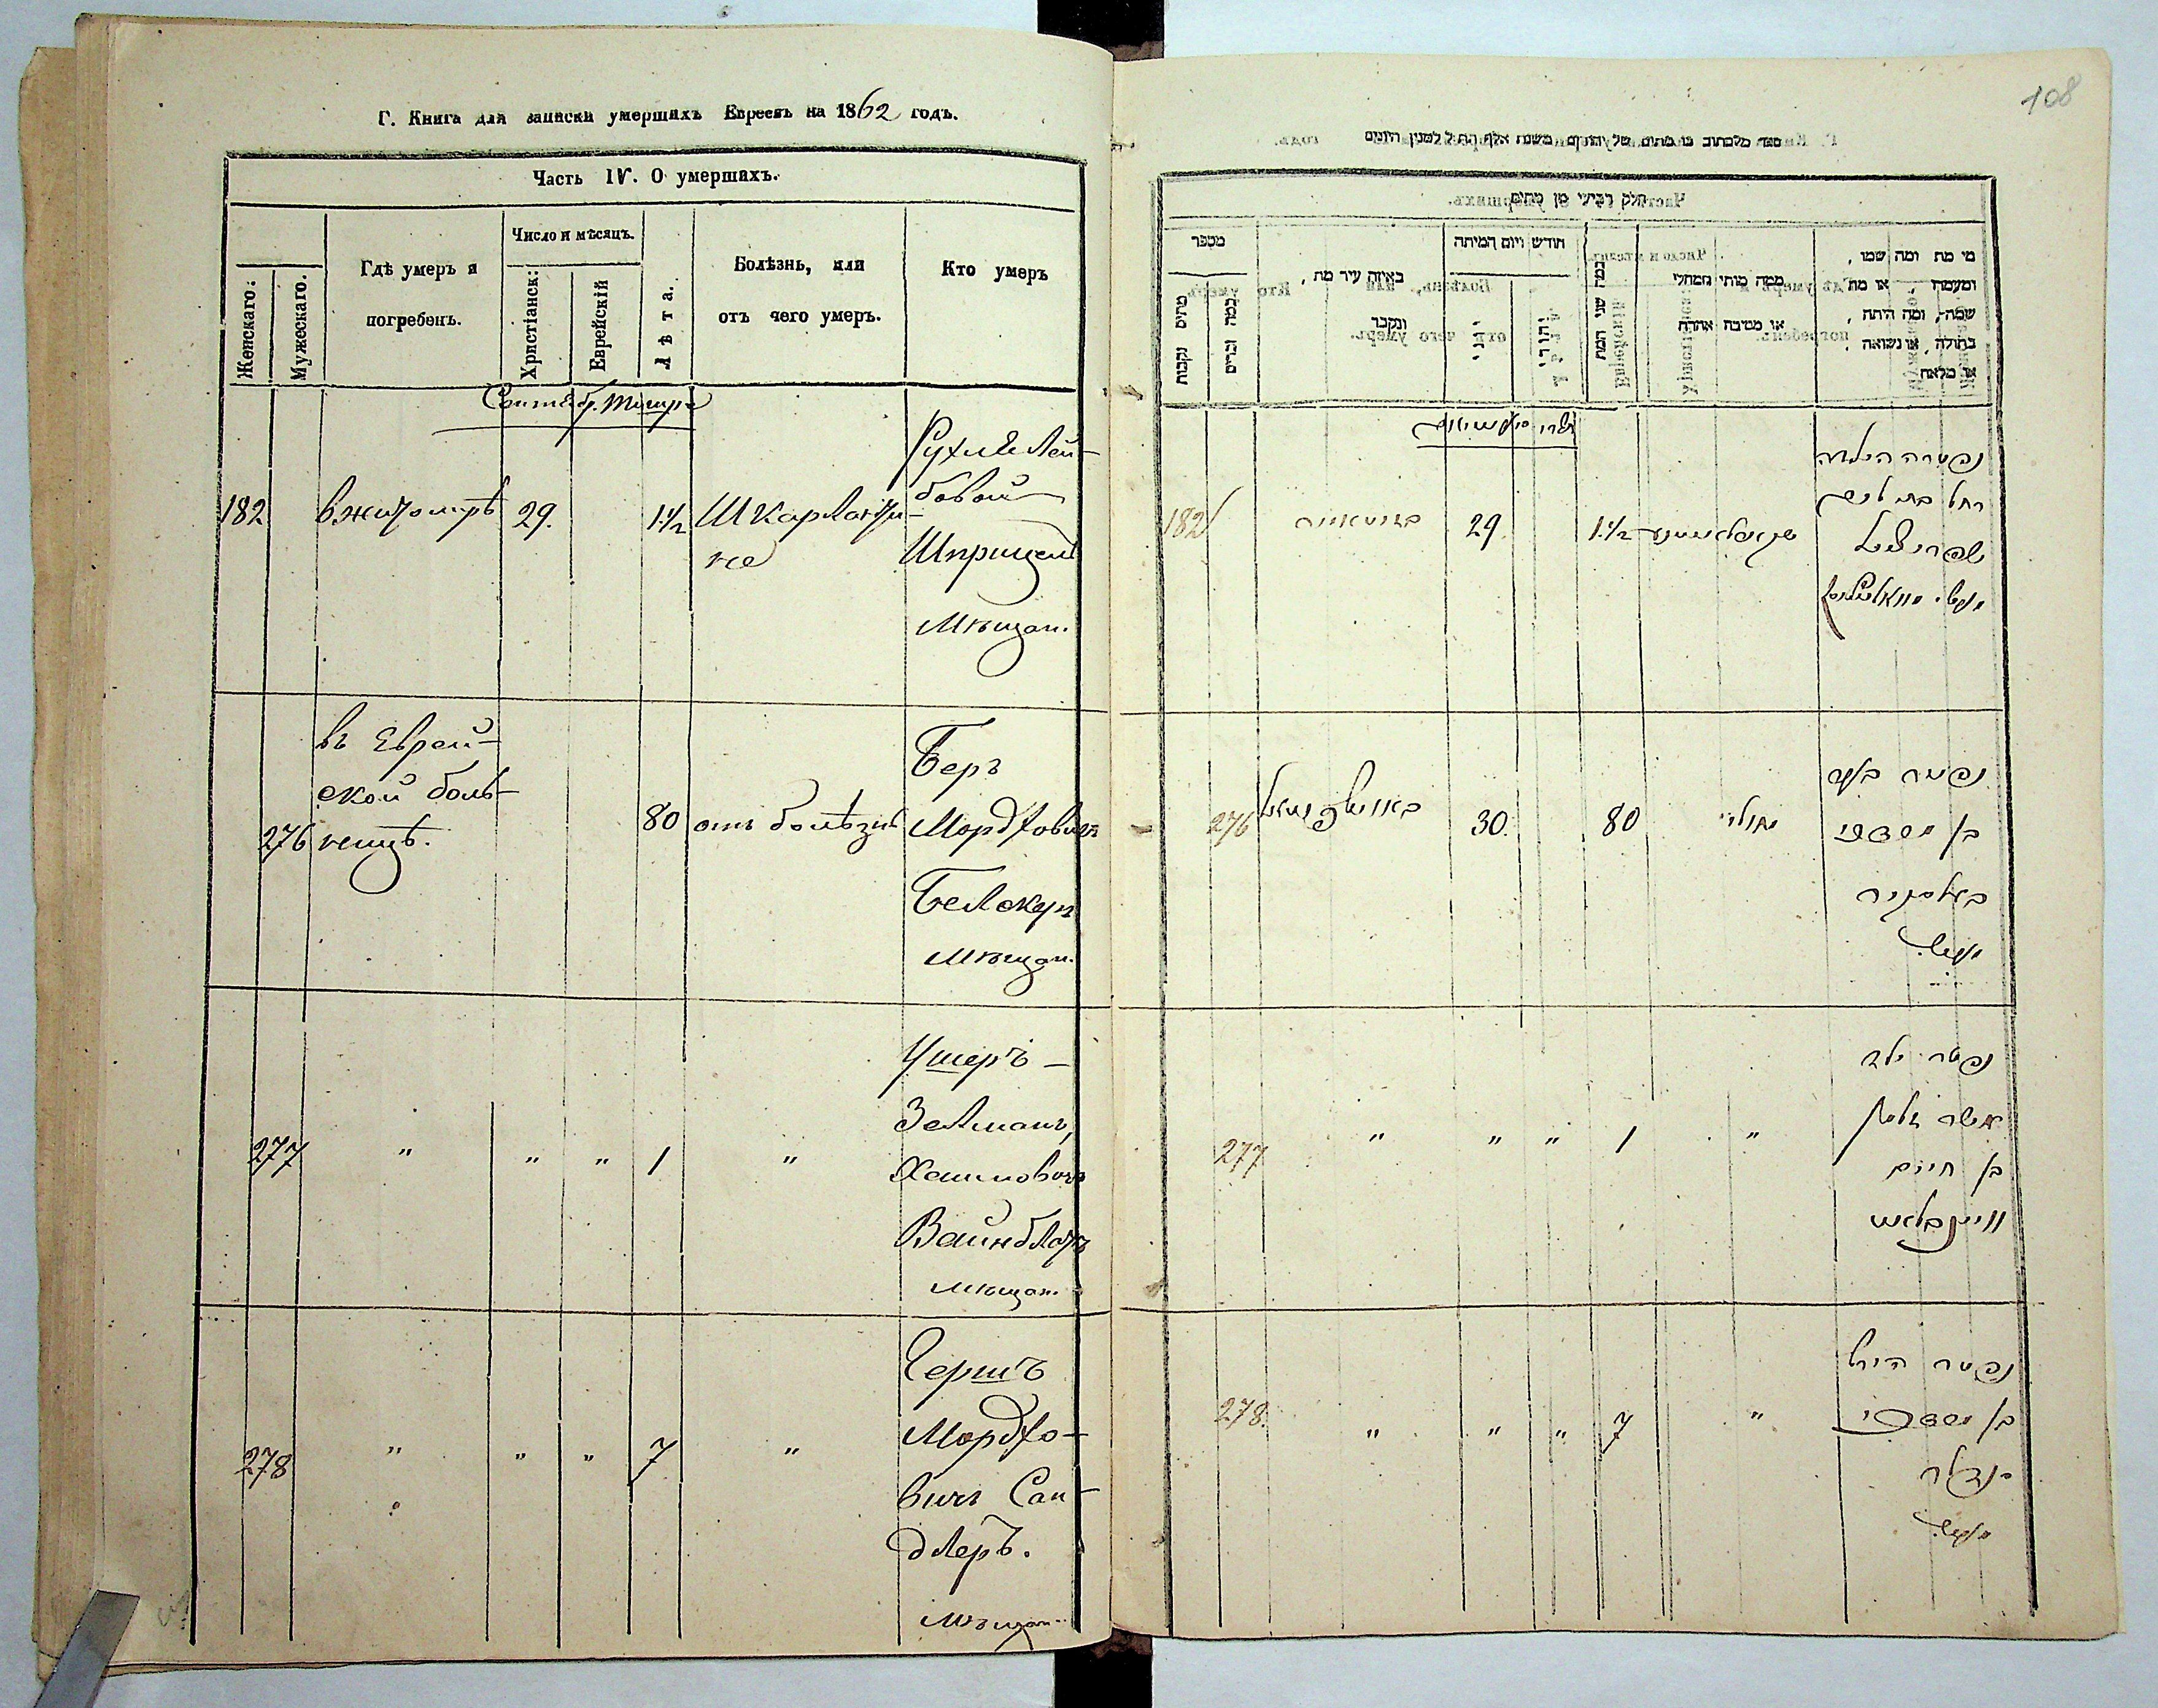 Г. Книга для записки умершихъ Евреевъ на 1862 годъ.
Часть IV. О умершихъ.
Женскаго:
Мужескаго.
Гдѣ умеръ и
погребенъ.
Число и мѣсяцъ.
Христіанск:
Еврейскій
Лѣта.
Болѣзнь, или
отъ чего умеръ.
Кто умеръ
182
вжитомрѣ
29.
1 1/2
Шкарлати-
не
Рухля Лей-
бовой
Шприцел
Мѣщан.
276
въ Еврей-
ской боль-
ницѣ.
80
отъ болѣзнѣ
Беръ
Мордховичъ
Белокур
мѣщан.
277
"
"
"
1
"
Ушеръ -
Зельманъ
Хаимовичъ
Вайнблатъ
мѣщан.
278
"
"
"
7
"
Гершъ
Мордхо-
вичъ Сан-
длеръ.
мѣщан.
108
חלק רביעי מן מתים
מספר
מתים נקבות
כמה זכרים
באיזה עיר מת,
ונקבר
חודש ויום המיתה
יוני
יהודי
כמה שני המת
ממה מותי ממחלי
או מסיבה אחרת
מי מת ומה שמו,
ומעמדו, או מת
שמה, ומה היתה,
בתולה, או נשואה
או מלאה
182
29
1 1/2
נפטרה הילדה
רחל בת ליב
שפריצל
276
30.
80
מחולי
נפטר בער
בן מרדכי
277
"
"
"
1
"
נפטר ילד
אשר זלמן
בן חיים
וויינבלאט
278.
"
"
"
7
"
נפטר הירש
בן מרדכי